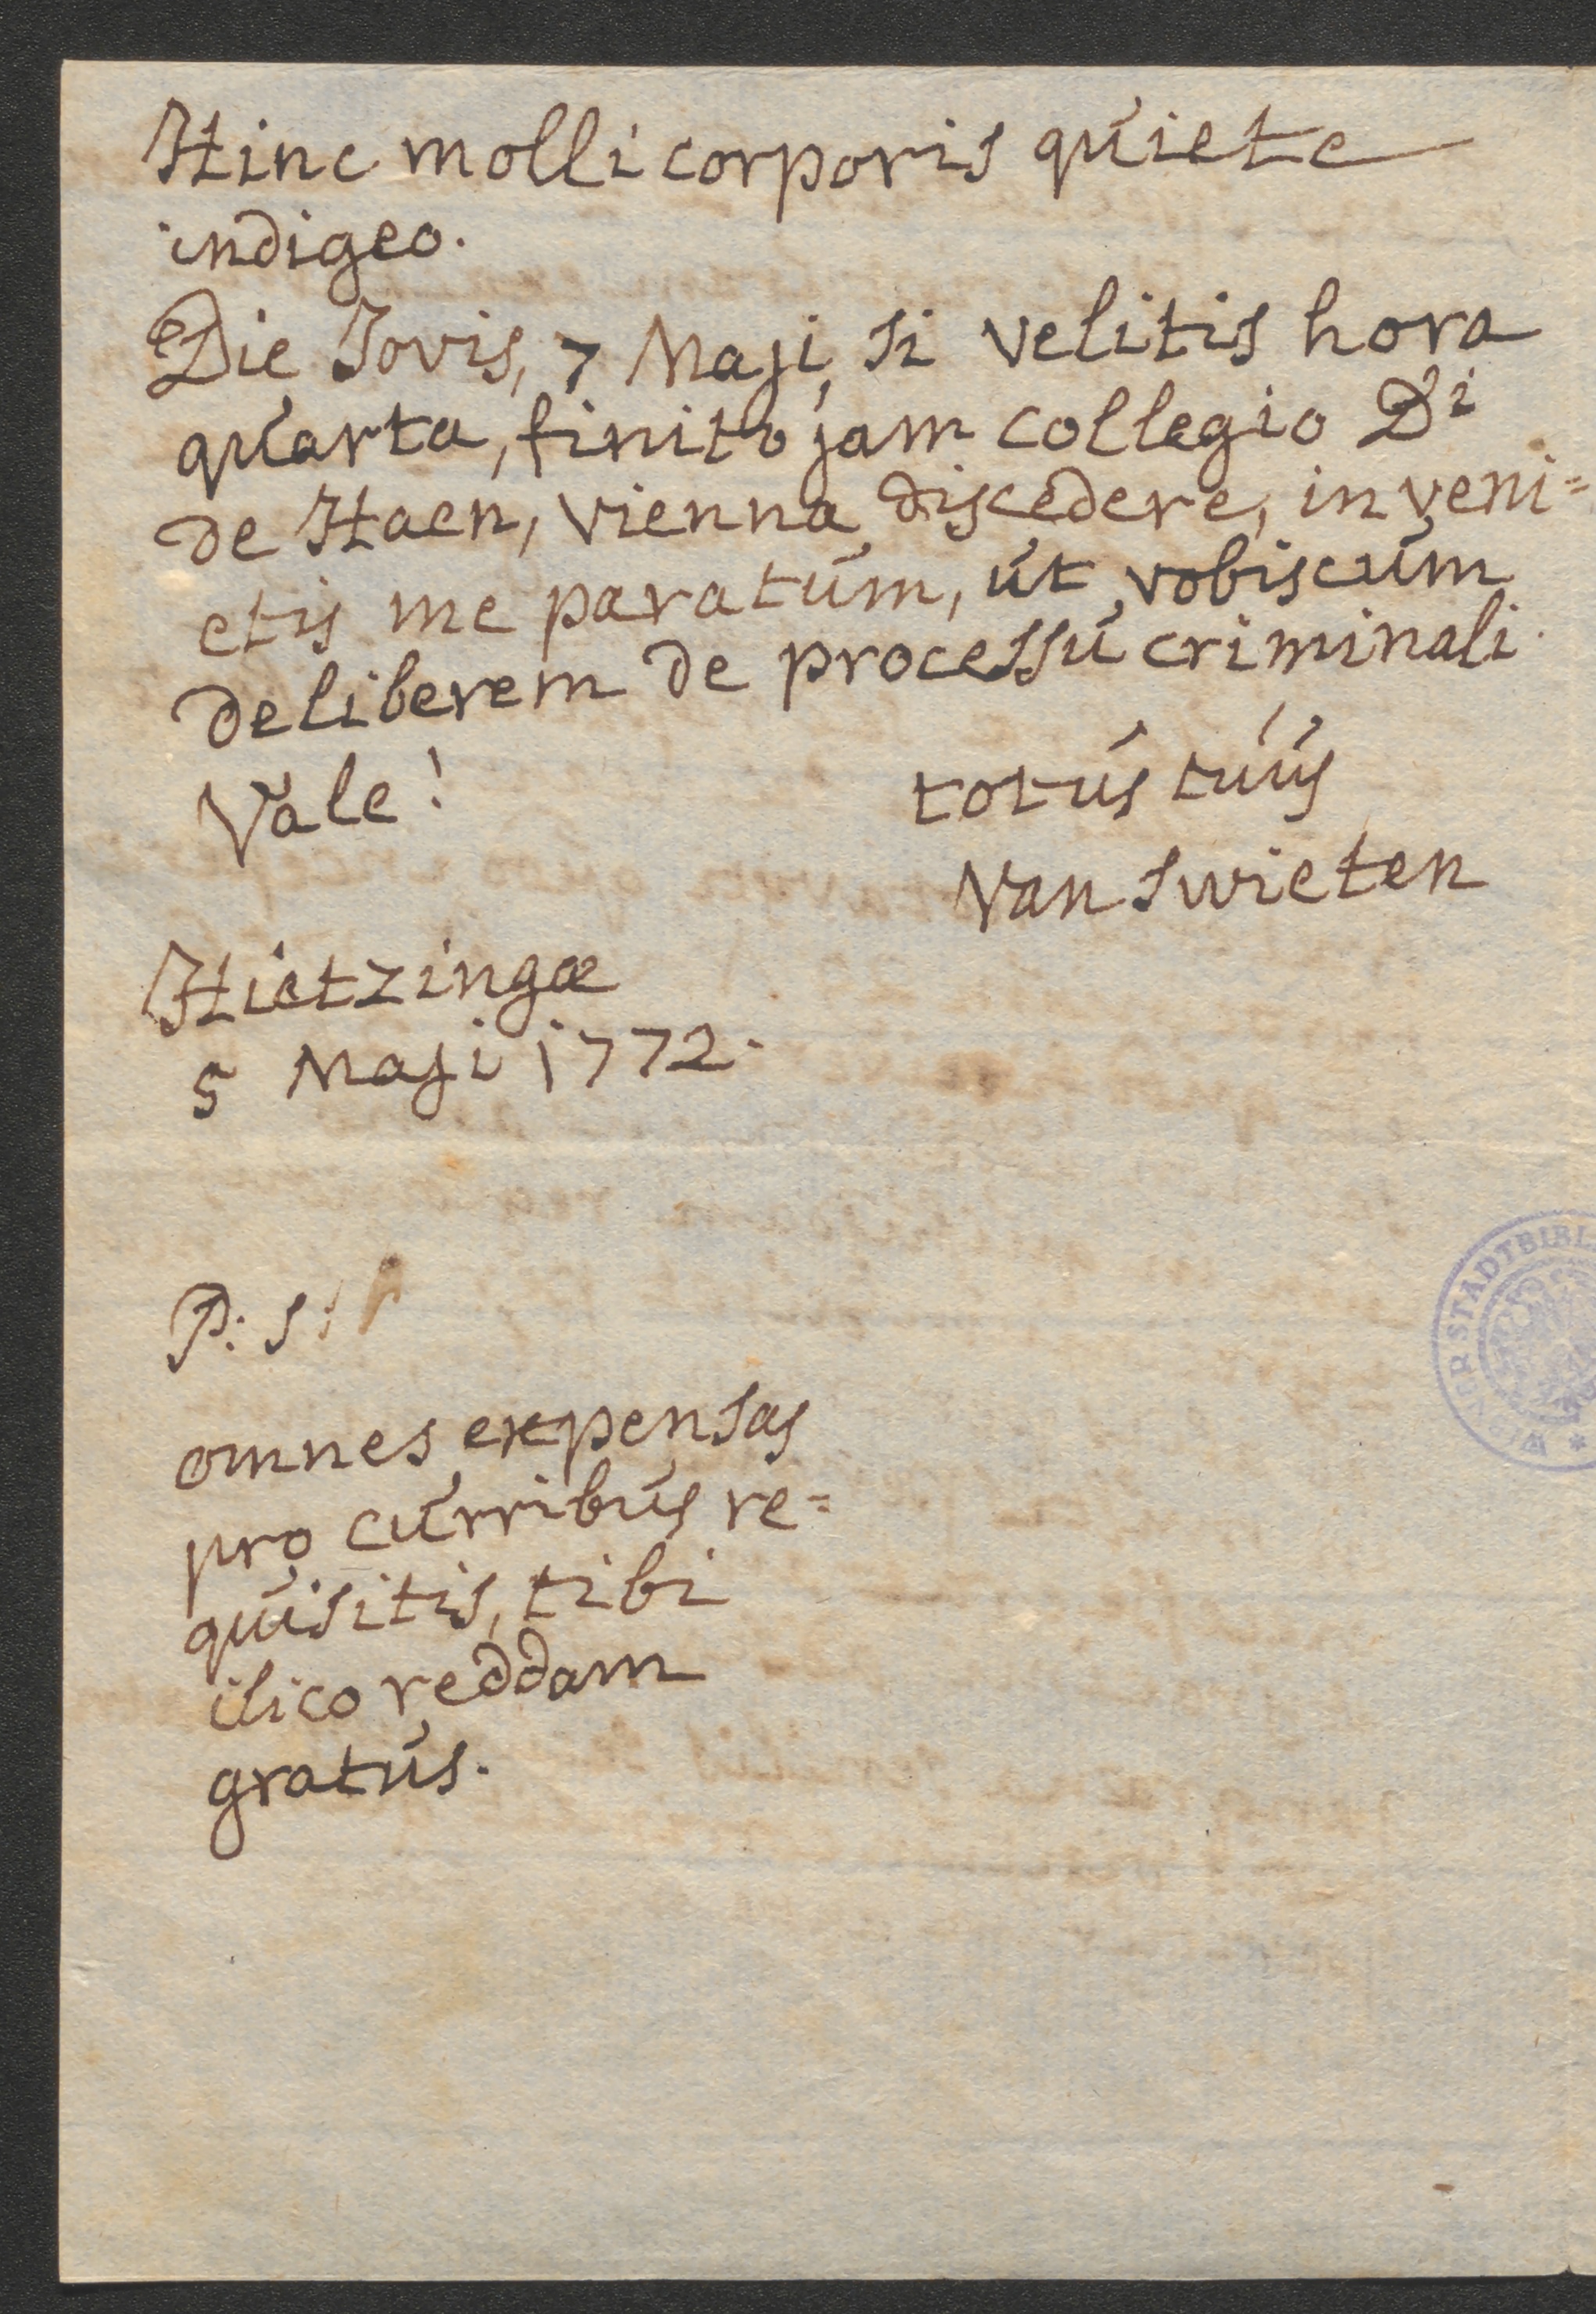 Hinc molli corporis quiete
indigeo.
Die Jovis, 7 Maji, si velitis hora
quarta, finito jam collegio Di
de Haen, Vienna discedere, inveni=
etis me paratum, ut vobiscum
deliberem de processu criminali.
Vale!
totus tuus
Van Swieten
Hietzingæ
5 Maji 1772.
P: S:
omnes expensas
pro curribus re=
quisitis, tibi
ilico reddam
gratus.